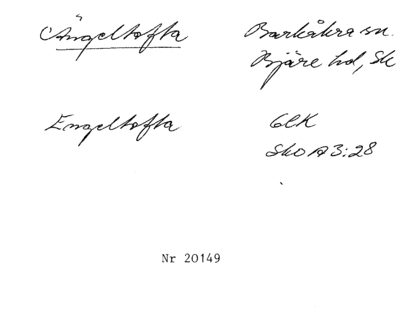 Ängeltofta Barkåkra sn.
Bjäre hd, Sk
Engeltofta GEK
Sko A 3:28
Nr 20149